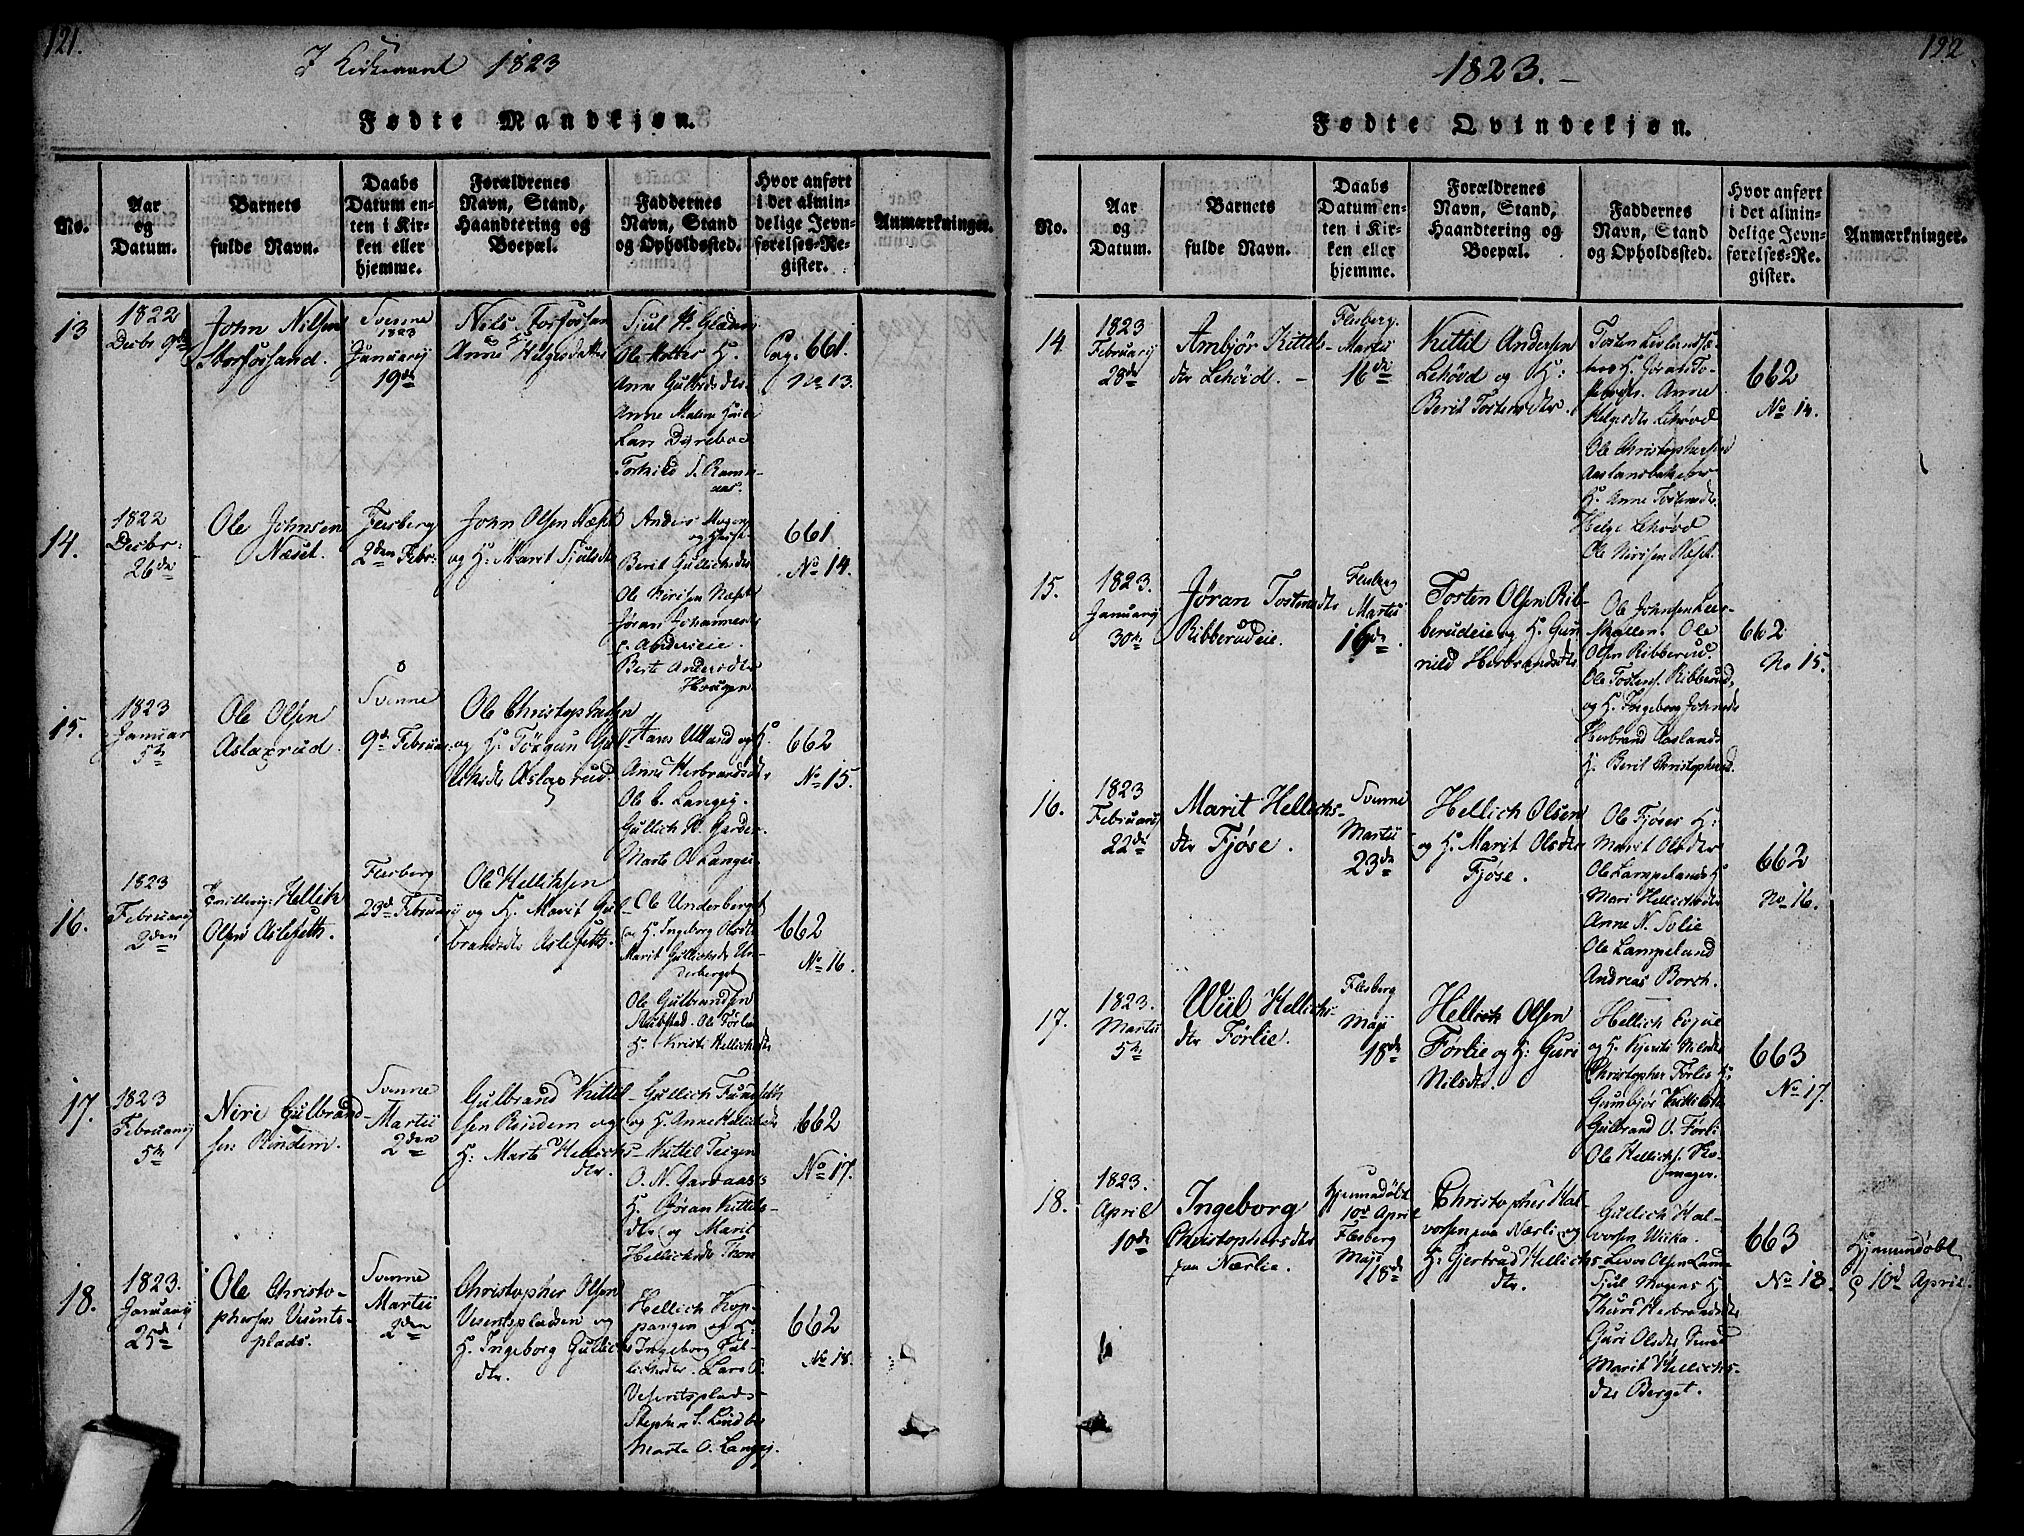 121.
I Kirkeaaret 1823
Fødte Mandkjøn.
No.
Aar
og
Datum.
Barnets
fulde Navn.
Daabs
Datum en-
ten i Kir-
ken eller
hjemme.
Forældrenes
Navn, Stand,
Haandtering og
Boepæl.
Faddernes
Navn, Stand
og Opholdssted.
Hvor anført
i det almin-
delige Jevn-
førelses-Re-
gister.
Anmærkninger.
13
1822
Decbr 9de
John Nilsen
Storfossand.
Svenne
1823
Januarij
19de
Nils Forfossan
Anne Helgesdatter
Sjul H.
Ole
Anne Gulbrdsdtr.
Anne
Lars Dyreboe
Torkild S. Ramn-
aas.
Pag. 661.
No 13.
14.
1822
Decbr:
26de
Ole Johnsen
Næset.
Flesberg
2den Febr:
John Olsen Næset
og K: Marit Sjulsdtr
Anders Mogens
Berit Gullichsdtr
Ole Nirisen Næset
Jøran Johannesdtr
Berte Andersdtr
Hougen.
661
No 14.
15.
1823
Januar
5te
Ole Olsen
Aslaxrud.
Svenne
9de Februar
Ole Christophersen
og K: Torgun Gul-
lichsdtr Aslaxrud.
Hans Ulland og K.
Anne Herbrandsdtr
Ole C. Langej.
Gullich
Marte O. Langej.
662
No 15.
16.
1823
Februarij
2den
Hellik
Olsen Aslefetth.
Flesberg
23de Februarij
Ole Helliksen
og K. Marit Gul-
brandsdtr Aslefetth.
Ole Underberget
og K. Ingeborg Olsdtr
Marit Gullichsdtr Un-
derberget
Ole Gulbrandsen
Ole Førlie
K. Kristi Hellichsdtr
662
No 16.
17.
1823
Februarij
5te
Niri Gulbrand-
sen Rindem.
Svenne
Martii
2den
Gulbrand Kittil-
sen Rindem og
K: Marte Hellichs-
dtr.
Gullich
og K. Anne Hellichsdtr
Kittil Teigen
O. N. Aardaas
K. Jøran Kittils-
dtr og Marit
Hellichsdtr
662
No 17.
18.
1823.
Januarij
25de
Ole Christo-
phersen Vesents-
plads.
Svenne
Martii
2den
Christopher Olsen
Vesentspladsen og
K. Ingeborg Gullichs-
dtr.
Hellich Kop-
pangen og K:
Ingeborg Gul-
lichsdtr. Lars O.
Vesentsplads-
Stephen S.
Marte O. Langej.
662
No 18.
122
1823.
Fødte Qvindekjøn.
No.
Aar
og
Datum.
Barnets
fulde Navn.
Daabs
Datum en-
ten i Kir-
ken eller
hjemme.
Forældrenes
Navn, Stand,
Haandtering og
Boepæl.
Faddernes
Navn, Stand
og Opholdssted.
Hvor anført
i det almin-
delige Jevn-
førelses-Re-
gister.
Anmærkninger.
14
1823
Februarij
28de
Ambjør Kittels-
dtr Lehovd.
Flesberg.
Martii
16de
Kittil Andersen
Lehovd og K:
Berit Tostensdtr.
Tosten
K. Jøran To-
stensdtr. Anne
Helgesdtr Lehøvd
Ole Christophersen
K. Anne Tostensdtr
Helge Lehovd
Ole Nirisen Næset.
662
No 14.
15.
1823.
Januarij
30te
Jøran Tostensdtr
Ribberudeie.
Flesberg
Martii
16de
Tosten Olsen Rib-
berudeie og K. Gun-
nild Herbrandsdtr
Ole Johnsen
Ole
Olsen Ribberud.
Ole Tostens. Ribberud,
og K. Ingeborg Johnsdtr
Herbrand Aasland
K. Berit Christophersd.
662
No 15.
16.
1823
Februarij
22de
Marit Hellichs-
dtr Fjøse.
Svenne
Martii
23de
Hellich Olsen
og K: Marit Olsdtr
Fjøse.
Ole Fjøser K:
Marit Olsdtr
Ole Lampeland K
Mari Hellichsdtr
Anne N. Solie
Ole Lampeland
Andreas Borch.
662
No 16.
17.
1823.
Martii
5te
Wiil Hellichs-
dtr Førlie.
Flesberg
Maji
18de
Hellich Olsen
Førlie og K: Guri
Nilsdtr.
Hellich
og K. Nilsdtr
Christopher Førlie K:
Gumbjør Kittilsdtr
Gulbrand O. Førli
Ole Hellichs.
663
No 17.
18.
1823.
April
10de
Ingeborg
Christophersdtr
paa Nærlie.
Hjemmedøbt
10de Aprile
Flesberg
Maji
18de
Christopher Hal-
vorsen paa Nærlie og
K: Gjertrud Hellichs-
dtr.
Gullich Hal-
vorsen Wiika.
Olsen
Sjul Mogens K
Herbrandsdtr
Guri Olsdtr
Marit Hellichs-
dtr Berget.
663
No 18.
Hjemmedøbt
10de April